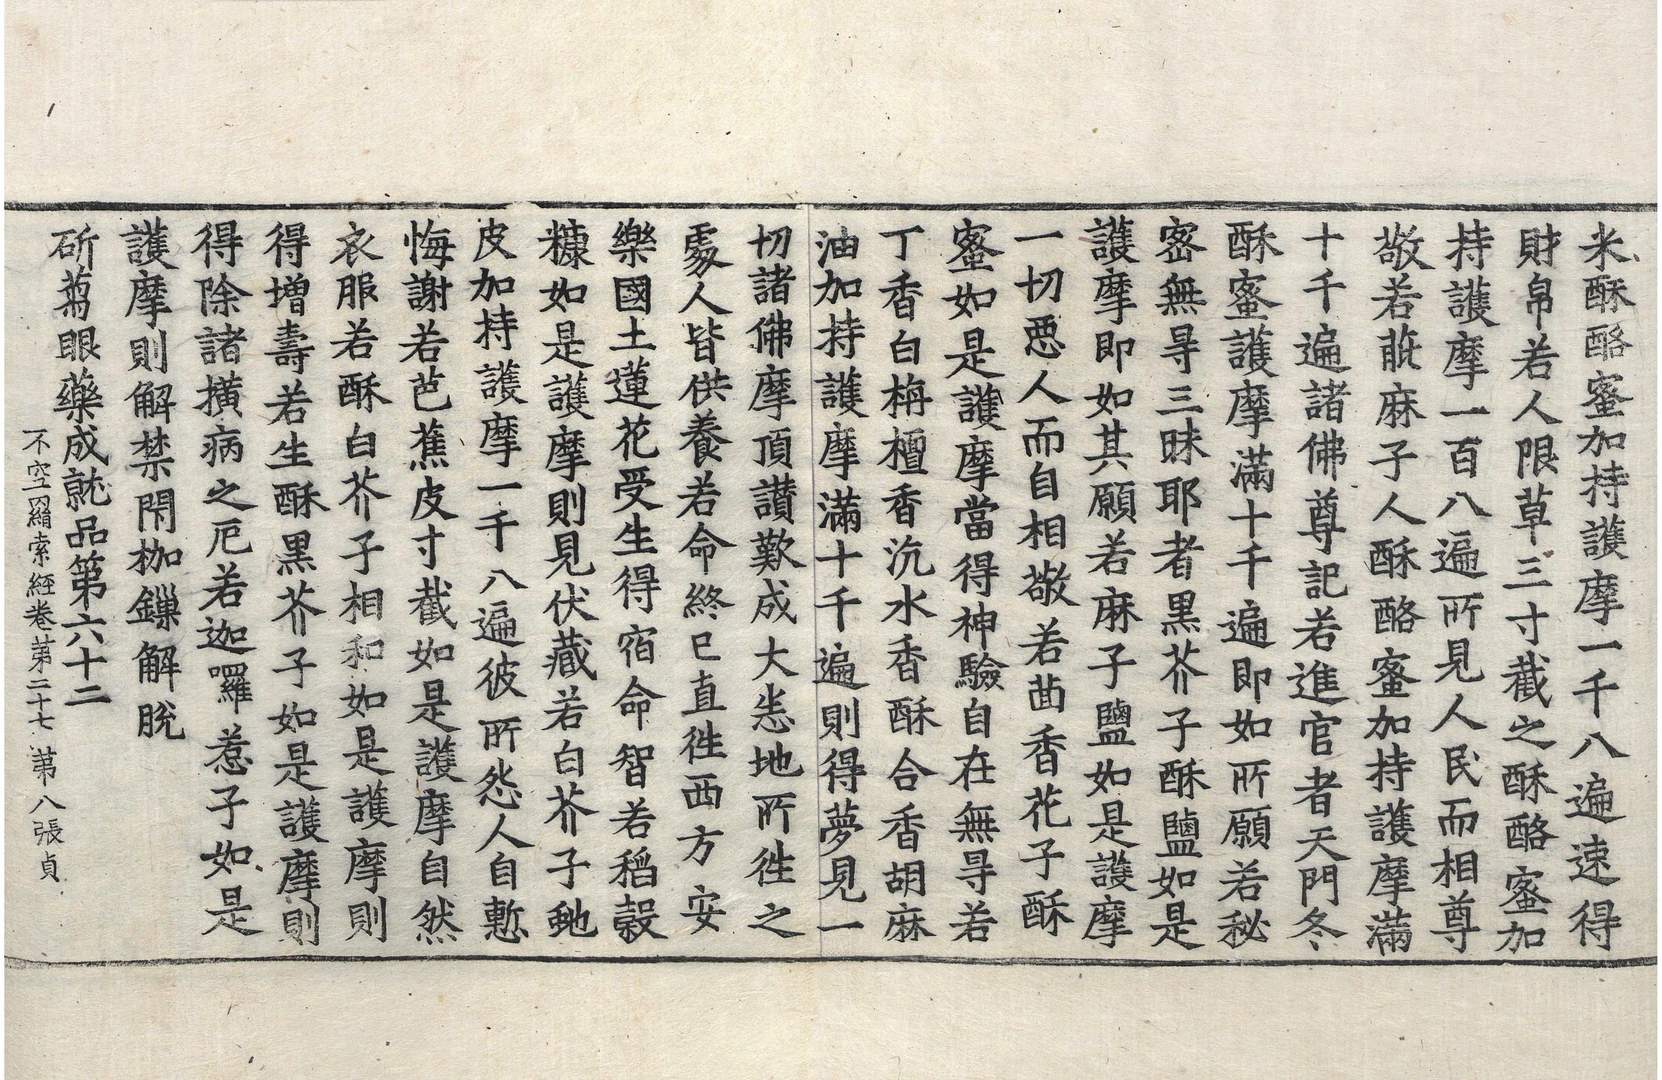 米酥酪蜜加持護摩一千八遍速得
財帛若人限草三寸截之酥酪蜜加
持護摩一百八遍所見人民而相尊
敬若蓏麻子人酥酪蜜加持護摩滿
十千遍諸佛尊記若進官者天門冬
酥蜜護摩滿十千遍即如所願若秘
密無㝵三昧耶者黑芥子酥鹽如是
護摩即如其願若麻子鹽如是護摩
一切惡人而自相敬若茴香花子酥
蜜如是護摩當得神驗自在無㝵若
丁香白栴檀香沉水香酥合香胡麻
油加持護摩滿十千遍則得夢見一
切諸佛摩頂讚歎成大悉地所往之
處人皆供養若命終已直往西方安
樂國土蓮花受生得宿命智若稻穀
糠如是護摩則見伏藏若白芥子虵
皮加持護摩一千八遍彼所怨人自慙
悔謝若芭蕉皮寸截如是護摩自然
衣服若酥白芥子相和如是護摩則
得增壽若生酥黑芥子如是護摩則
得除諸橫病之厄若迦囉惹子如是
護摩則解禁閉枷鏁解脫
斫蒭眼藥成就品第六十二
不空羂索經卷第二十七 第八張 貞